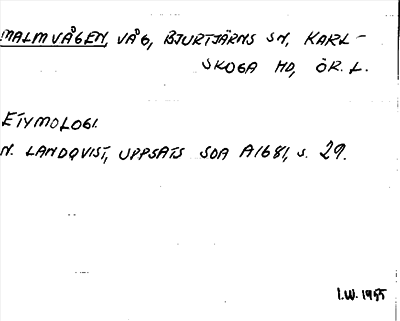 MALMVÅGEN, VÅG, BJURTJÄRNS SN, KARL-
SKOGA HD, ÖR. L.
ETYMOLOGI.
N. LANDQVIST, UPPSATS SOA A1681, s. 29.
I.W. 1955